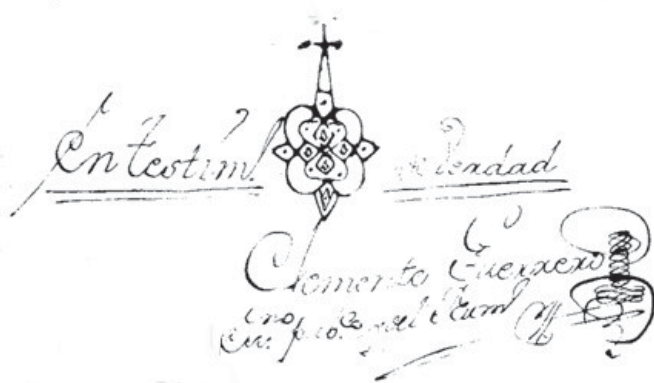 En testim.º de Verdad
Clemente Guerrero
Ess.no pu.co y del Num.o